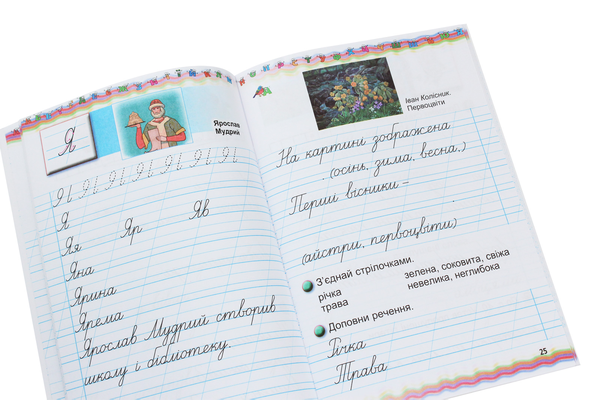 Я
Ярослав
Мудрий
Я
Яя Яр Яв
Яна
Ярина
Ярема
Ярослав Мудрий створив
школу і бібліотеку.
Іван Колісник.
Первоцвіти
На картині зображена
(осінь, зима, весна.)
Перші вісники –
(айстри, первоцвіти)
З'єднай стрілочками.
річка зелена, соковита, свіжа
трава невелика, неглибока
Доповни речення.
Річка
Трава
25